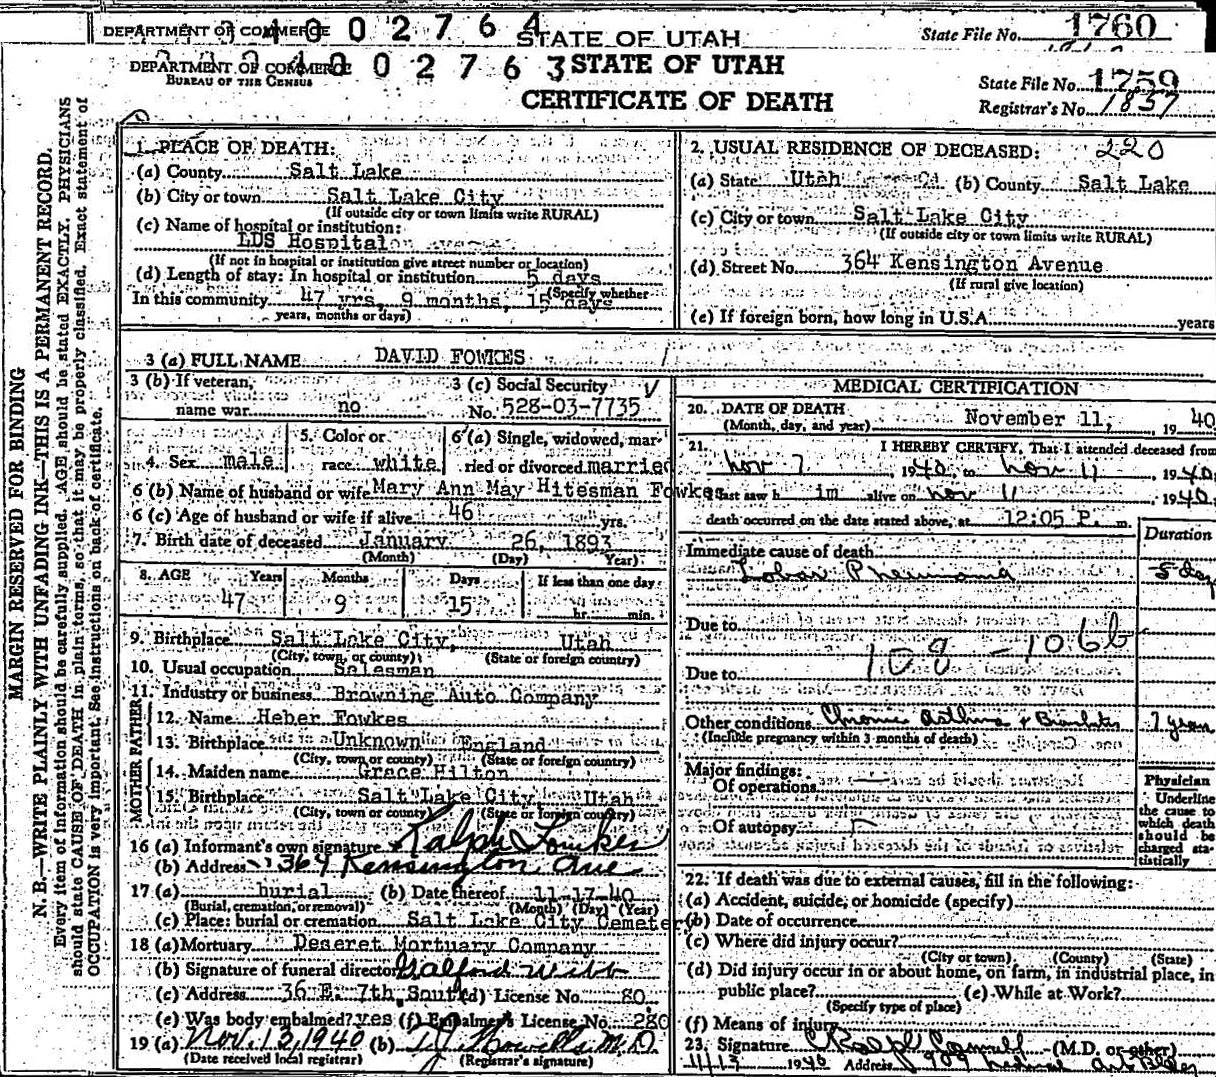 DEPARTMENT OF COMMERCE 3 1 0 0 2 7 6 4 STATE OF UTAH State File No. 1760
DEPARTMENT OF COMMERCE 0 0 2 7 6 3 STATE OF UTAH
BUREAU OF THE CENSUS
CERTIFICATE OF DEATH
State File No. 1759
Registrar's No. 1857
MARGIN RESERVED FOR BINDING
N. B.—WRITE PLAINLY WITH UNFADING INK—THIS IS A PERMANENT RECORD.
Every item of information should be carefully supplied. AGE should be stated EXACTLY. PHYSICIANS
should state CAUSE OF DEATH in plain terms, so that it may be properly classified. Exact statement of
OCCUPATION is very important. See instructions on back of certificate.
1. PLACE OF DEATH:
(a) County Salt Lake
(b) City or town Salt Lake City
(If outside city or town limits write RURAL)
(c) Name of hospital or institution:
LDS Hospital
(If not in hospital or institution give street number or location)
(d) Length of stay: In hospital or institution 5 days
(Specify whether
In this community 47 yrs, 9 months, 15 days
years, months or days)
2. USUAL RESIDENCE OF DECEASED: 220
(a) State Utah (b) County Salt Lake
(c) City or town Salt Lake City
(If outside city or town limits write RURAL)
(d) Street No. 364 Kensington Avenue
(If rural give location)
(e) If foreign born, how long in U.S.A. years
3 (a) FULL NAME DAVID FOWKES
3 (b) If veteran, name war no
3 (c) Social Security No. 528-03-7735
4. Sex male
5. Color or race white
6 (a) Single, widowed, married or divorced married
6 (b) Name of husband or wife Mary Ann May Hitesman Fowkes
6 (c) Age of husband or wife if alive 46 yrs.
7. Birth date of deceased January 26, 1893
(Month) (Day) (Year)
8. AGE Years Months Days If less than one day
47 9 15 hr. min.
9. Birthplace Salt Lake City, Utah
(City, town, or county) (State or foreign country)
10. Usual occupation Salesman
11. Industry or business Browning Auto Company
FATHER
12. Name Heber Fowkes
13. Birthplace Unknown England
(City, town or county) (State or foreign country)
MOTHER
14. Maiden name Grace Hilton
15. Birthplace Salt Lake City Utah
(City, town or county) (State or foreign country)
16 (a) Informant's own signature Ralph Fowkes
(b) Address 364 Kensington Ave
17 (a) burial (b) Date thereof 11-17-40
(Burial, cremation, or removal) (Month) (Day) (Year)
(c) Place: burial or cremation Salt Lake City Cemetery
18 (a) Mortuary Deseret Mortuary Company
(b) Signature of funeral director Webb
(c) Address 36 E. 7th South (d) License No. 80
(e) Was body embalmed? yes (f) Embalmer's License No. 280
19 (a) Nov. 13, 1940 (b) M.D.
(Date received local registrar) (Registrar's signature)
MEDICAL CERTIFICATION
20. DATE OF DEATH
(Month, day, and year) November 11, 1940
21. I HEREBY CERTIFY, That I attended deceased from
Nov 7 1940 to Nov 11 1940
last saw h im alive on Nov 11 1940
death occurred on the date stated above, at 12:05 P. m.
Duration
Immediate cause of death
Lobar Pneumonia 5 day
Due to
108 - 106b
Due to
Other conditions Chronic Asthma & Bronchitis 7 years
(Include pregnancy within 3 months of death)
Major findings:
Of operations
Of autopsy
Physician
Underline
the cause to
which death
should be
charged sta-
tistically
22. If death was due to external causes, fill in the following:
(a) Accident, suicide, or homicide (specify)
(b) Date of occurrence
(c) Where did injury occur?
(City or town) (County) (State)
(d) Did injury occur in or about home, on farm, in industrial place, in
public place? (e) While at Work?
(Specify type of place)
(f) Means of injury
23. Signature Ralph (M.D. or other)
11/13 1940 Address Medical Arts Bldg